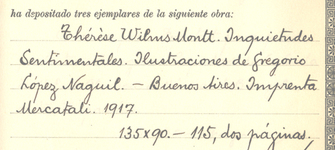 ha depositado tres ejemplares de la siguiente obra:
Thérèse Wilms Montt. Inquietudes
Sentimentales. Ilustraciones de Gregorio
López Naguil. – Buenos Aires. Imprenta
Mercatali. 1917.
135x90. – 115, dos páginas.